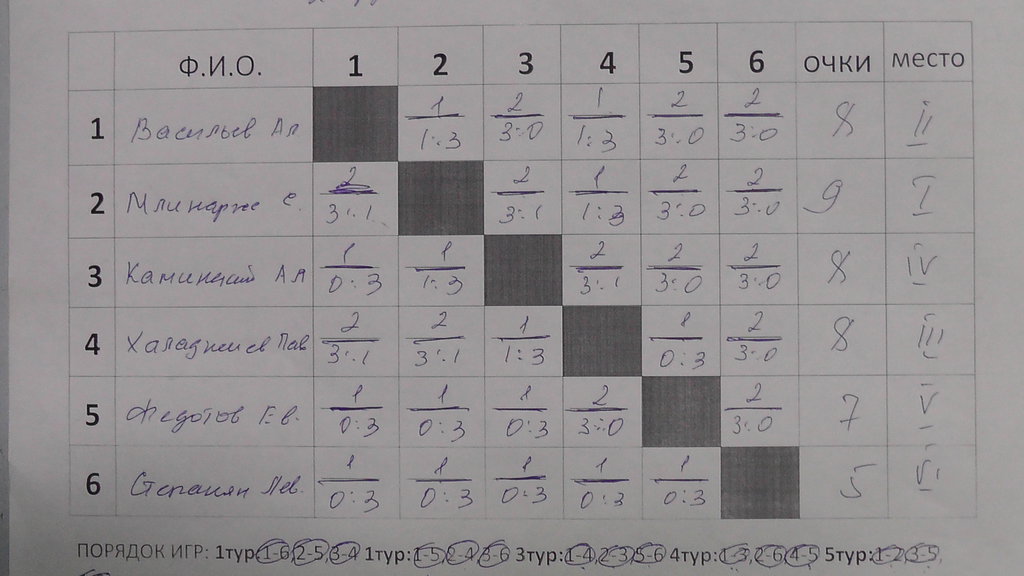 Ф.И.О. 1 2 3 4 5 6 очки место
1 Васильев Ал 1 1:3 2 3:0 1 1:3 2 3:0 2 3:0 8 II
2 Млинарже С. 2 3:1 2 3:1 1 1:3 2 3:0 2 3:0 9 I
3 Ал 1 0:3 1 1:3 2 3:1 2 3:0 2 3:0 8 IV
4 Пав 2 3:1 2 3:1 1 1:3 1 0:3 2 3:0 8 III
5 Федотов Ев. 1 0:3 1 0:3 1 0:3 2 3:0 2 3:0 7 V
6 Степанян Лев. 1 0:3 1 0:3 1 0:3 1 0:3 1 0:3 5 VI
ПОРЯДОК ИГР: 1тур:1-6,2-5,3-4 1тур:1-5,2-4,3-6 3тур:1-4,2-3,5-6 4тур:1-3,2-6,4-5 5тур:1-2,3-5,